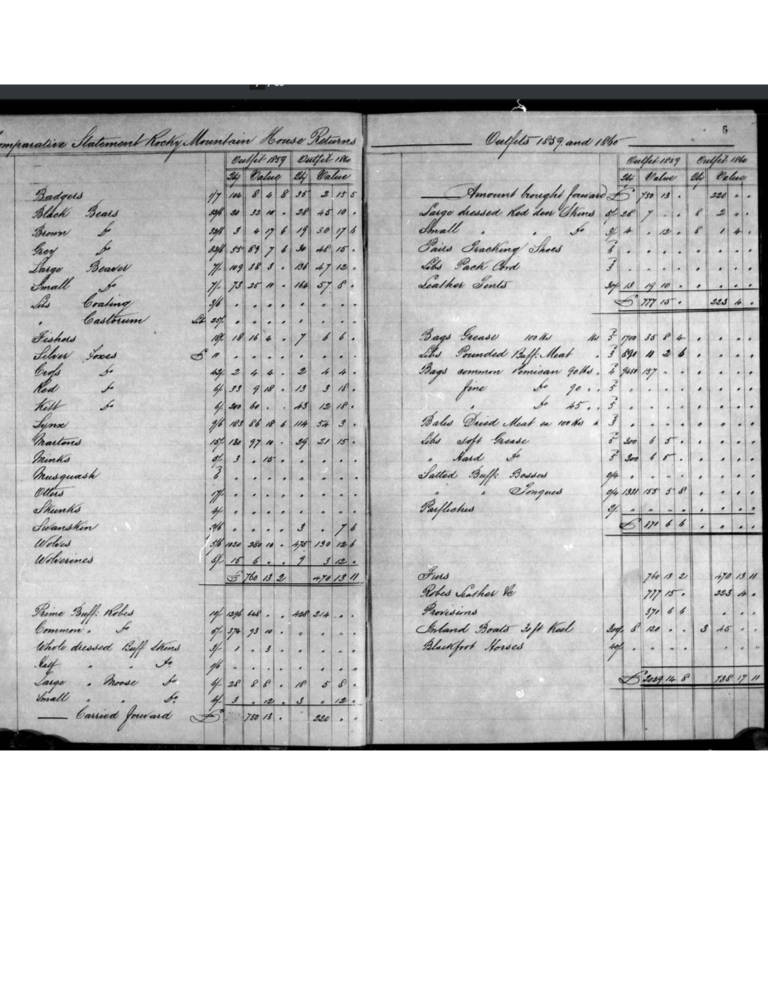 Comparative Statement Rocky Mountain House Returns
Outfit 1859 Outfit 1860
Qty Value Qty Value
Badgers 1/7 104 8 4 8 35 2 15 5
Black Bears 32/6 20 32 10 . 28 45 10 .
Brown Do 32/6 3 4 17 6 19 30 17 6
Grey Do 32/6 55 89 7 6 30 48 15 .
Large Beaver 7/. 109 38 3 . 136 47 12 .
Small Do 7/. 73 25 10 . 164 57 8 .
Lbs Coating 3/6 . . . . . . . .
" Castorum . . . . . . . .
Fishers 18 16 4 . 7 6 6 .
Silver Foxes £ 11 . . . . . . . .
Cross Do 42/ 2 4 4 . 2 4 4 .
Red Do 6/ 33 9 18 . 13 3 18 .
Kitt Do 6/ 200 60 . . 43 12 18 .
Lynx 9/6 183 86 18 6 114 54 3 .
Martens 15/ 130 97 10 . 29 21 15 .
Minks 5/ 3 . 15 . . . . .
Musquash . . . . . . . .
Otters . . . . . . . .
Skunks 4/. . . . . . . . .
Swanskin 2/6 . . . . 3 . 7 6
Wolves 5/6 1020 280 10 . 475 130 12 6
Wolverines 8/. 15 6 . . 9 3 12 .
£ 760 13 2 470 13 11
Prime Buff: Robes 10/ 1296 648 . . 428 214 . .
Common " Do 5/ 374 93 10 . . . . .
Whole dressed Buff Skins 3/ 1 . 3 . . . . .
Half " " Do . . . . . . . .
Large " Moose Do 6/ 28 8 8 . 18 5 8 .
Small " " Do 4/ 3 . 12 . 3 . 12 .
Carried forward £ 750 13 . 220 . .
5
Outfits 1859 and 1860
Outfit 1859 Outfit 1860
Qty Value Qty Value
Amount brought forward £ 750 13 . 220 . .
Large dressed Red deer Skins 5/ 28 7 . . 8 2 . .
Small " " Do 3/ 4 . 12 . 8 1 4 .
Pairs Tracking Shoes . . . . . . . .
Lbs Pack Cord . . . . . . . .
Leather Tents 30/ 13 19 10 . . . . .
£ 777 15 . 223 4 .
Bags Grease 100 lbs 1700 35 8 4 . . . .
Lbs Pounded Buff: Meat 890 11 2 6 . . . .
Bags common Pemican 90 lbs . . . .
fine Do 90 " . . . . . . . .
" Do 45 " . . . . . . . .
Bales Dried Meat in 100 lbs . . . . . . . .
Lbs Soft Grease 300 6 5 . . . . .
" Hard Do 300 6 5 . . . . .
Salted Buff: Bosses . . . . . . . .
" " Tongues 155 5 8 . . . .
Parflectus . . . . . . . .
£ 371 6 6 . . . .
Furs 760 13 2 470 13 11
Robes Leather &c 777 15 . 223 4 .
Provisions 371 6 6 . . .
Inland Boats 30 ft Keel 8 120 . . 3 45 . .
Blackfoot Horses 40/
£ 2029 14 8 738 17 11